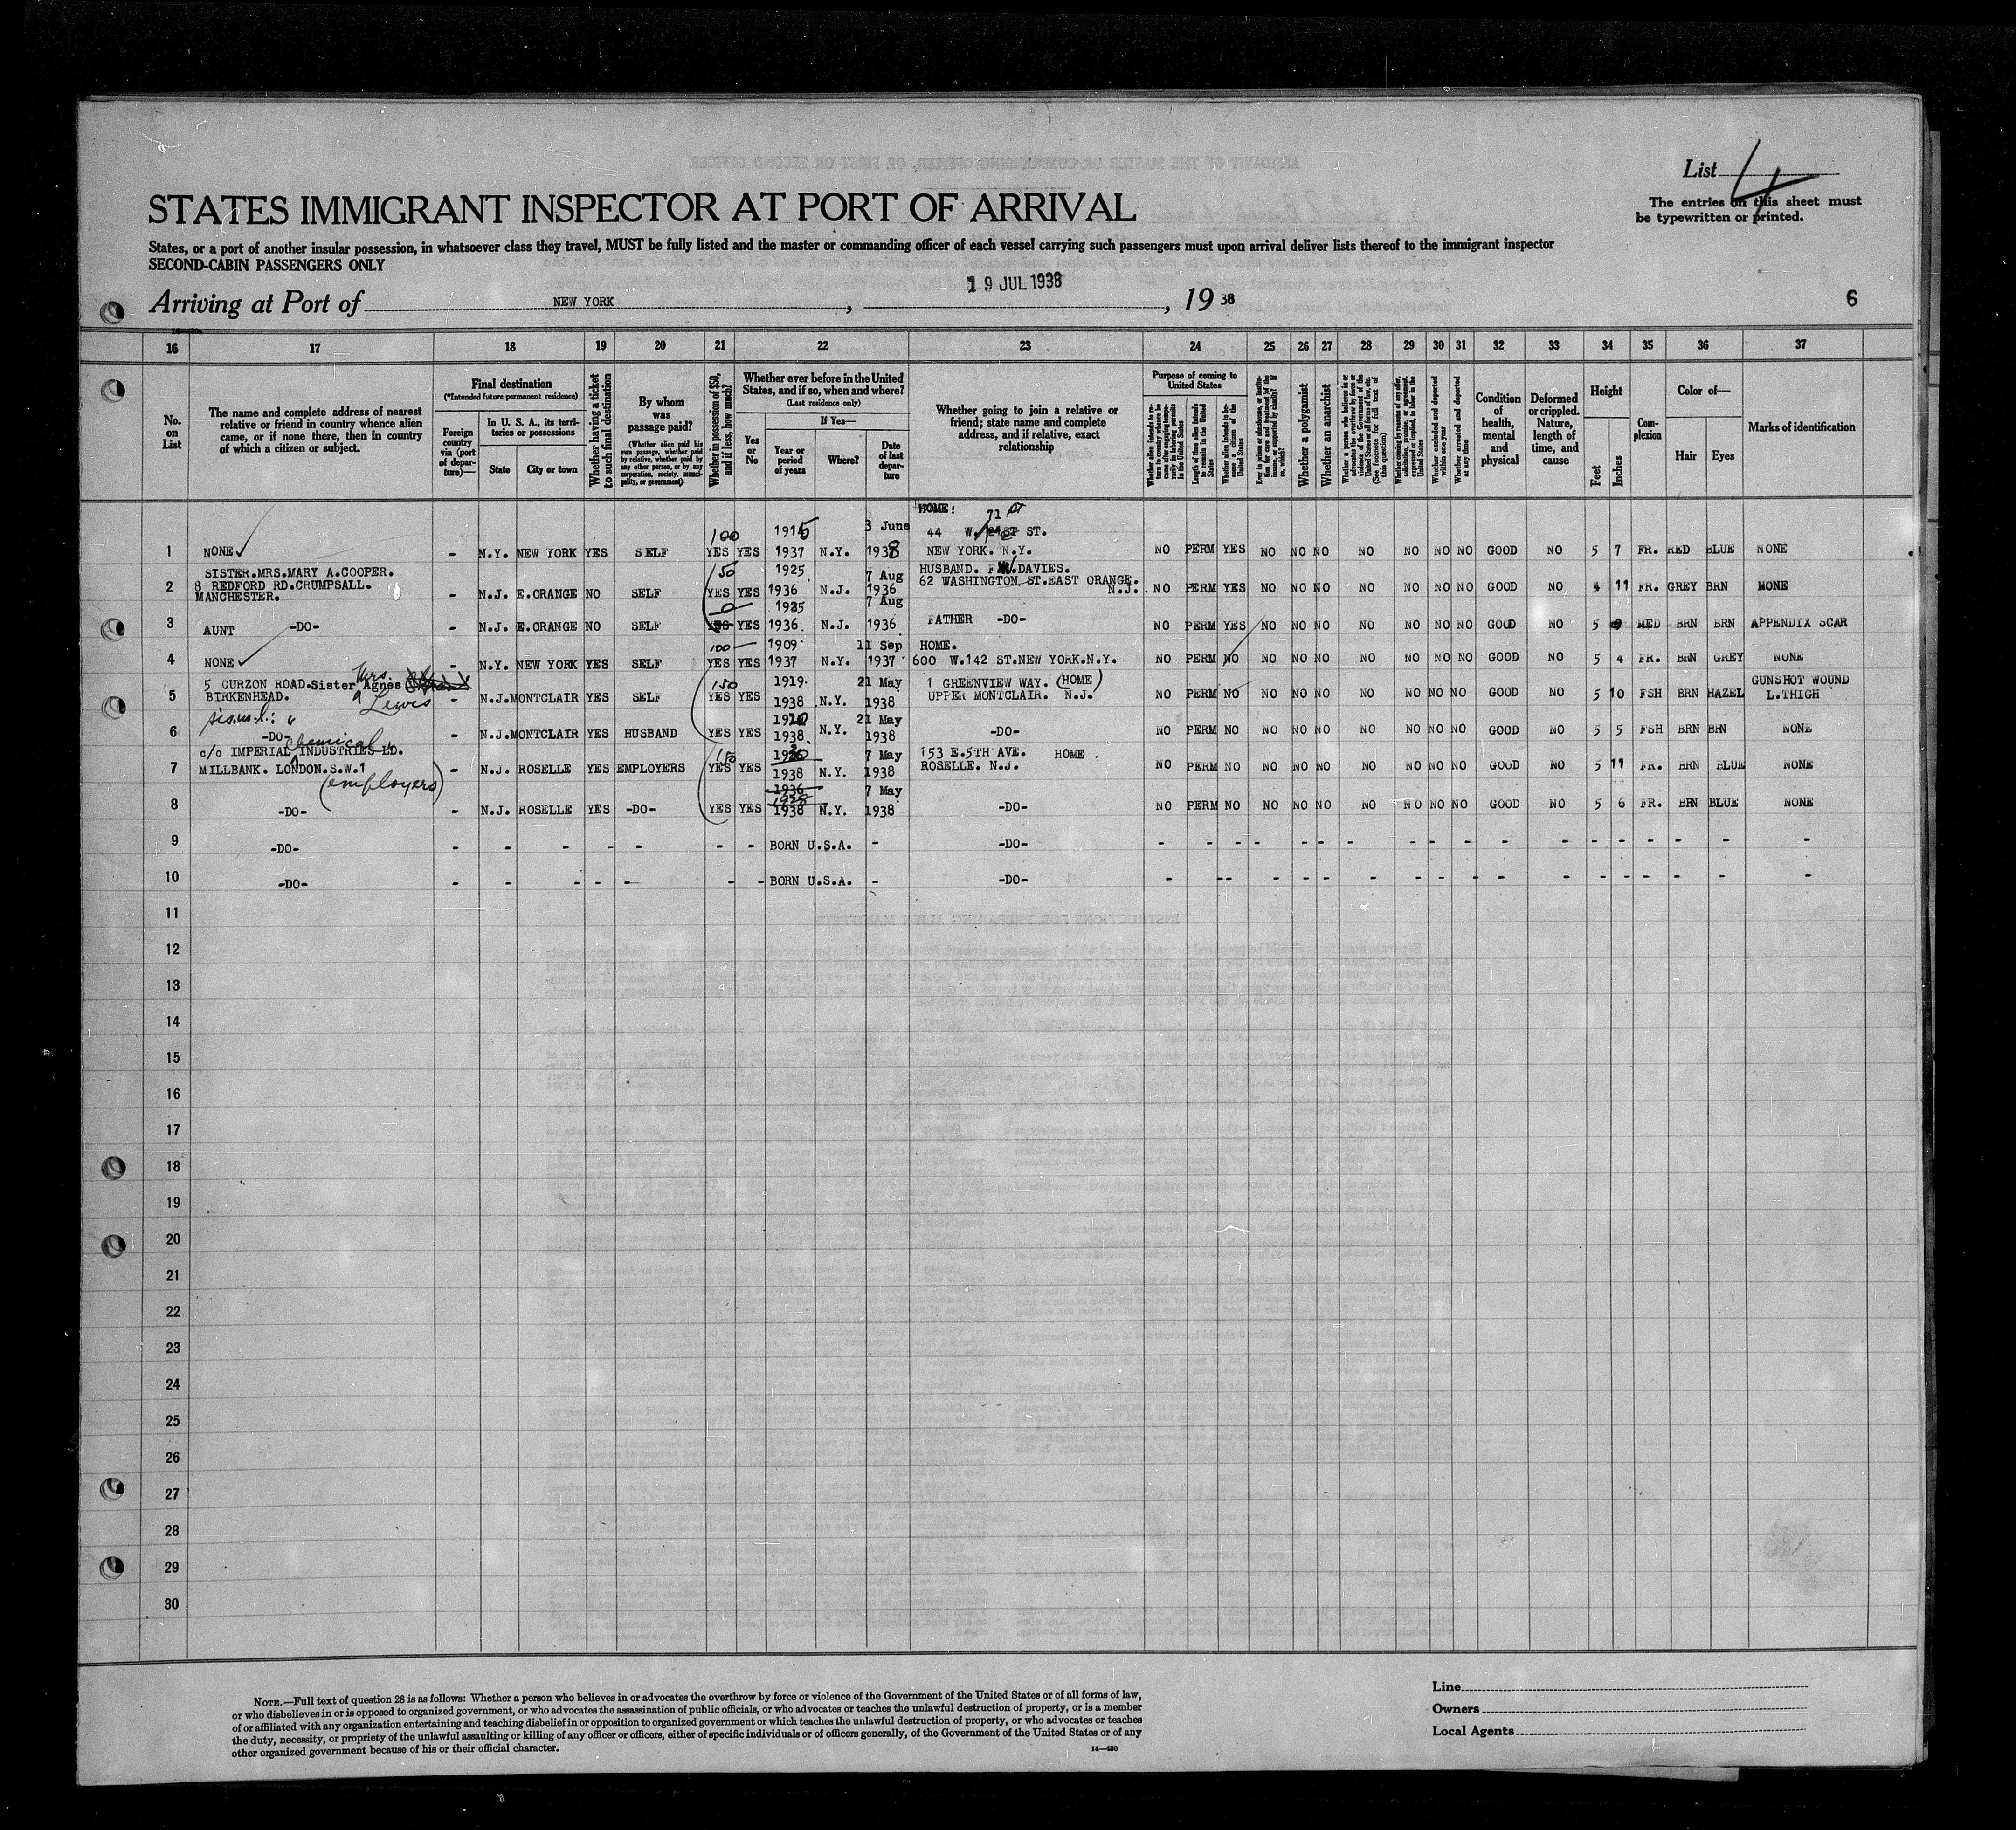 List 4
The entries on this sheet must
be typewritten or printed.
STATES IMMIGRANT INSPECTOR AT PORT OF ARRIVAL
States, or a port of another insular possession, in whatsoever class they travel, MUST be fully listed and the master or commanding officer of each vessel carrying such passengers must upon arrival deliver lists thereof to the immigrant inspector
SECOND-CABIN PASSENGERS ONLY
Arriving at Port of NEW YORK, 19 JUL 1938, 19 38
6
16 17 18 19 20 21 22 23 24 25 26 27 28 29 30 31 32 33 34 35 36 37
No. on List
The name and complete address of nearest
relative or friend in country whence alien
came, or if none there, then in country
of which a citizen or subject.
Final destination
(*Intended future permanent residence)
Foreign country via (port of departure)—
In U. S. A., its territories or possessions
State City or town
Whether having a ticket to such final destination
By whom was passage paid?
(Whether alien paid his own passage, whether paid by relative, whether paid by any other person, or by any corporation, society, municipality, or government)
Whether in possession of $50, and if less, how much?
Whether ever before in the United
States, and if so, when and where?
(Last residence only)
Yes or No
If Yes—
Year or period of years
Where?
Date of last departure
Whether going to join a relative or
friend; state name and complete
address, and if relative, exact
relationship
Purpose of coming to
United States
Length of time alien intends to remain in the United States
Whether alien intends to become a citizen of the United States
Whether a polygamist
Whether an anarchist
(See footnote for full text of this question)
Whether excluded and deported within one year
Whether arrested and deported at any time
Condition of health, mental and physical
Deformed or crippled. Nature, length of time, and cause
Height
Feet Inches
Complexion
Color of—
Hair Eyes
Marks of identification
HOME!
71 ST
100 1915 3 June 44 W. ST.
1 NONE - N.Y. NEW YORK YES SELF YES YES 1937 N.Y. 1938 NEW YORK. N.Y. NO PERM YES NO NO NO NO NO NO NO GOOD NO 5 7 FR. RED BLUE NONE
SISTER.MRS.MARY A.COOPER. 150 1925 7 Aug HUSBAND. F.W.DAVIES.
2 8 REDFORD RD.CRUMPSALL. 62 WASHINGTON ST.EAST ORANGE.
MANCHESTER. - N.J. E.ORANGE NO SELF YES YES 1936 N.J. 1936 N.J. NO PERM YES NO NO NO NO NO NO NO GOOD NO 4 11 FR. GREY BRN NONE
0 1925 7 Aug
3 AUNT -DO- - N.J. E.ORANGE NO SELF YES YES 1936 N.J. 1936 FATHER -DO- NO PERM YES NO NO NO NO NO NO NO GOOD NO 5 MED BRN BRN APPENDIX SCAR
100 1909 11 Sep HOME.
4 NONE - N.Y. NEW YORK YES SELF YES YES 1937 N.Y. 1937 600 W.142 ST.NEW YORK.N.Y. NO PERM NO NO NO NO NO NO NO NO GOOD NO 5 4 FR. BRN GREY NONE
5 CURZON ROAD.Sister Mrs. Agnes Lewis 150 1919 21 May 1 GREENVIEW WAY. (HOME) GUNSHOT WOUND
5 BIRKENHEAD. - N.J. MONTCLAIR YES SELF YES YES 1938 N.Y. 1938 UPPER MONTCLAIR. N.J. NO PERM NO NO NO NO NO NO NO NO GOOD NO 5 10 FSH BRN HAZEL L.THIGH
sis.in.l.: " 21 May
6 -DO- - N.J. MONTCLAIR YES HUSBAND YES YES 1938 N.Y. 1938 -DO- NO PERM NO NO NO NO NO NO NO NO GOOD NO 5 5 FSH BRN BRN NONE
c/o IMPERIAL Chemical INDUSTRIES LD. 150 7 May 153 E.5TH AVE. HOME.
7 MILLBANK. LONDON.S.W.1 - N.J. ROSELLE YES EMPLOYERS YES YES 1938 N.Y. 1938 ROSELLE. N.J. NO PERM NO NO NO NO NO NO NO NO GOOD NO 5 11 FR. BRN BLUE NONE
(employers) 1936 1928 7 May
8 -DO- - N.J. ROSELLE YES -DO- YES YES 1938 N.Y. 1938 -DO- NO PERM NO NO NO NO NO NO NO NO GOOD NO 5 6 FR. BRN BLUE NONE
9 -DO- - - - - - - - BORN U.S.A. - -DO- - - - - - - - - - - - - - - - - - -
10 -DO- - - - - - - - BORN U.S.A. - -DO- - - - - - - - - - - - - - - - - - -
11
12
13
14
15
16
17
18
19
20
21
22
23
24
25
26
27
28
29
30
NOTE.—Full text of question 28 is as follows: Whether a person who believes in or advocates the overthrow by force or violence of the Government of the United States or of all forms of law,
or who disbelieves in or is opposed to organized government, or who advocates the assassination of public officials, or who advocates or teaches the unlawful destruction of property, or is a member
of or affiliated with any organization entertaining and teaching disbelief in or opposition to organized government or which teaches the unlawful destruction of property, or who advocates or teaches
the duty, necessity, or propriety of the unlawful assaulting or killing of any officer or officers, either of specific individuals or of officers generally, of the Government of the United States or of any
other organized government because of his or their official character.
14—430
Line
Owners
Local Agents